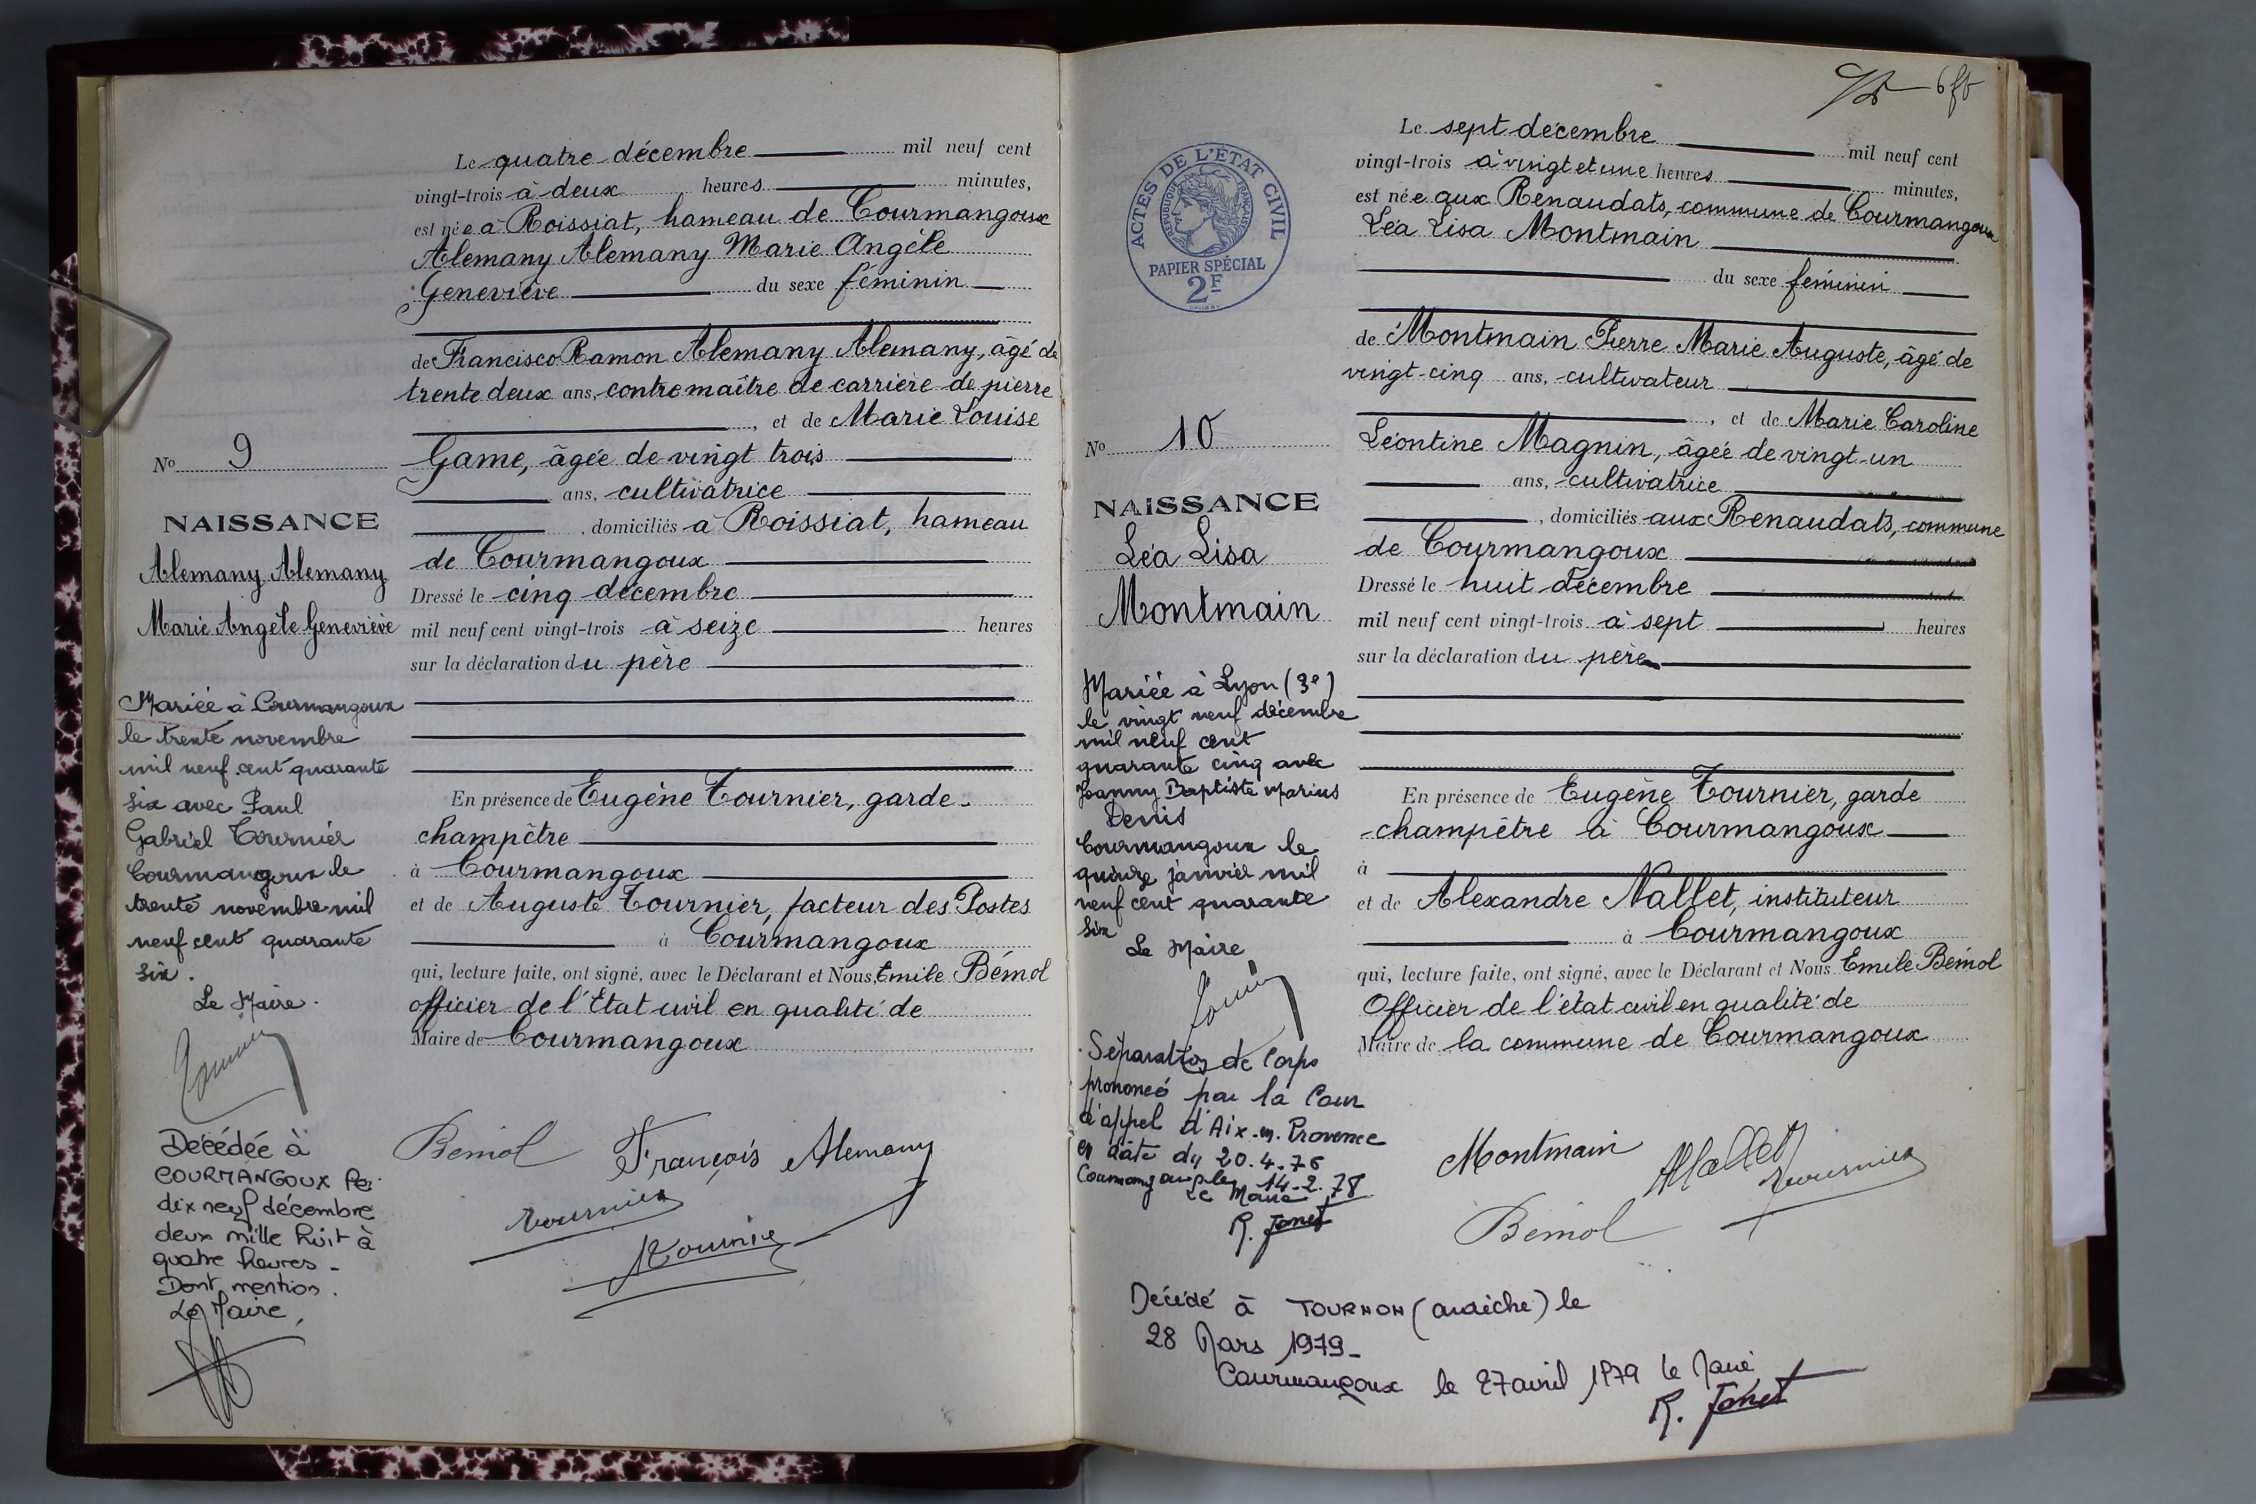 Le quatre décembre mil neuf cent
vingt-trois à deux heures minutes,
est née à Roissiat, hameau de Courmangoux
Alemany Alemany Marie Angèle
Geneviève du sexe féminin
de Francisco Ramon Alemany Alemany, âgé de
trente deux ans, contremaître de carrière de pierre
, et de Marie Louise
Game, âgée de vingt trois
ans, cultivatrice
, domiciliés à Roissiat, hameau
de Courmangoux
Dressé le cinq décembre
mil neuf cent vingt-trois à seize heures
sur la déclaration du père
En présence de Eugène Tournier, garde-
champêtre
à Courmangoux
et de Auguste Tournier, facteur des Postes
à Courmangoux
qui, lecture faite, ont signé, avec le Déclarant et Nous, Emile Bémol
officier de l'Etat civil en qualité de
Maire de Courmangoux
Bémol François Alemany
Tournier
Tournier
No 9
NAISSANCE
Alemany Alemany
Marie Angèle Geneviève
Mariée à Courmangoux
le trente novembre
mil neuf cent quarante
six avec Paul
Gabriel Tournier
Courmangoux le
trente novembre mil
neuf cent quarante
six.
Le Maire.
Décédée à
COURMANGOUX le
dix neuf décembre
deux mille huit à
quatre heures -
Dont mention.
Le Maire,
ACTES DE L'ÉTAT CIVIL
RÉPUBLIQUE FRANÇAISE
PAPIER SPÉCIAL
2F
Le sept décembre mil neuf cent
vingt-trois à vingt et une heures minutes,
est née aux Renaudats, commune de Courmangoux
Léa Lisa Montmain
du sexe féminin
de Montmain Pierre Marie Auguste, âgé de
vingt-cinq ans, cultivateur
, et de Marie Caroline
Léontine Magnin, âgée de vingt-un
ans, cultivatrice
, domiciliés aux Renaudats, commune
de Courmangoux
Dressé le huit décembre
mil neuf cent vingt-trois à sept heures
sur la déclaration du père
En présence de Eugène Tournier, garde
-champêtre à Courmangoux
à
et de Alexandre Nallet, instituteur
à Courmangoux
qui, lecture faite, ont signé, avec le Déclarant et Nous Emile Bémol
Officier de l'état civil en qualité de
Maire de la commune de Courmangoux
Montmain ANallet Tournier
Bémol
No 10
NAISSANCE
Léa Lisa
Montmain
Mariée à Lyon (3e)
le vingt neuf décembre
mil neuf cent
quarante cinq avec
Joanny Baptiste Marius
Denis
Courmangoux le
quinze janvier mil
neuf cent quarante
six
Le Maire
Séparation de Corps
prononcé par la Cour
d'appel d'Aix-en-Provence
en date du 20.4.76
Courmangoux le 14-2-78
Le Maire
R. Janet
Décédé à TOURNON (ardèche) le
28 Mars 1979-
Courmangoux le 27 avril 1979 le Maire
R. Janet